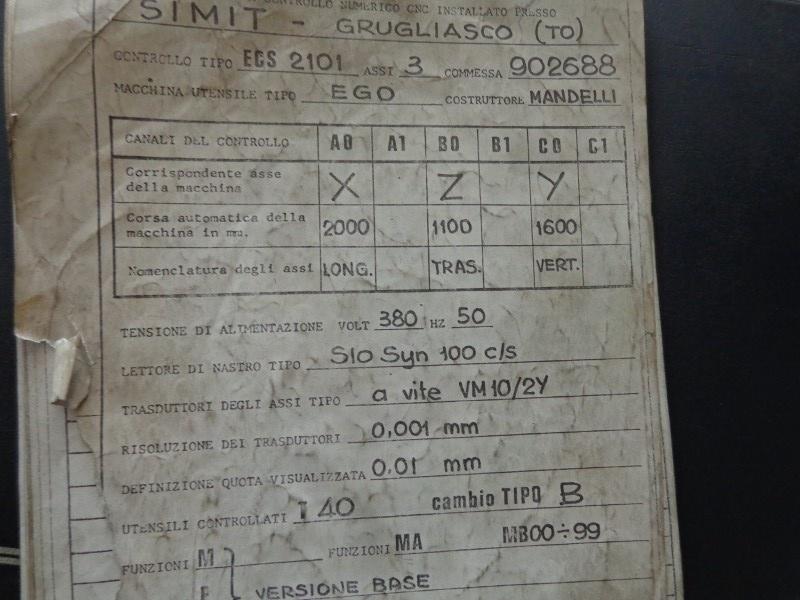 CONTROLLO NUMERICO CNC INSTALLATO PRESSO
SIMIT - GRUGLIASCO (TO)
CONTROLLO TIPO EGS 2101 ASSI 3 COMMESSA 902688
MACCHINA UTENSILE TIPO EGO COSTRUTTORE MANDELLI
CANALI DEL CONTROLLO A0 A1 B0 B1 C0 C1
Corrispondente asse
della macchina X Z Y
Corsa automatica della
macchina in mm. 2000 1100 1600
Nomenclatura degli assi LONG. TRAS. VERT.
TENSIONE DI ALIMENTAZIONE VOLT 380 HZ 50
LETTORE DI NASTRO TIPO Slo Syn 100 c/s
TRASDUTTORI DEGLI ASSI TIPO a vite VM10/2Y
RISOLUZIONE DEI TRASDUTTORI 0,001 mm
DEFINIZIONE QUOTA VISUALIZZATA 0,01 mm
UTENSILI CONTROLLATI T 40 cambio TIPO B
FUNZIONI M FUNZIONI MA MB00÷99
VERSIONE BASE